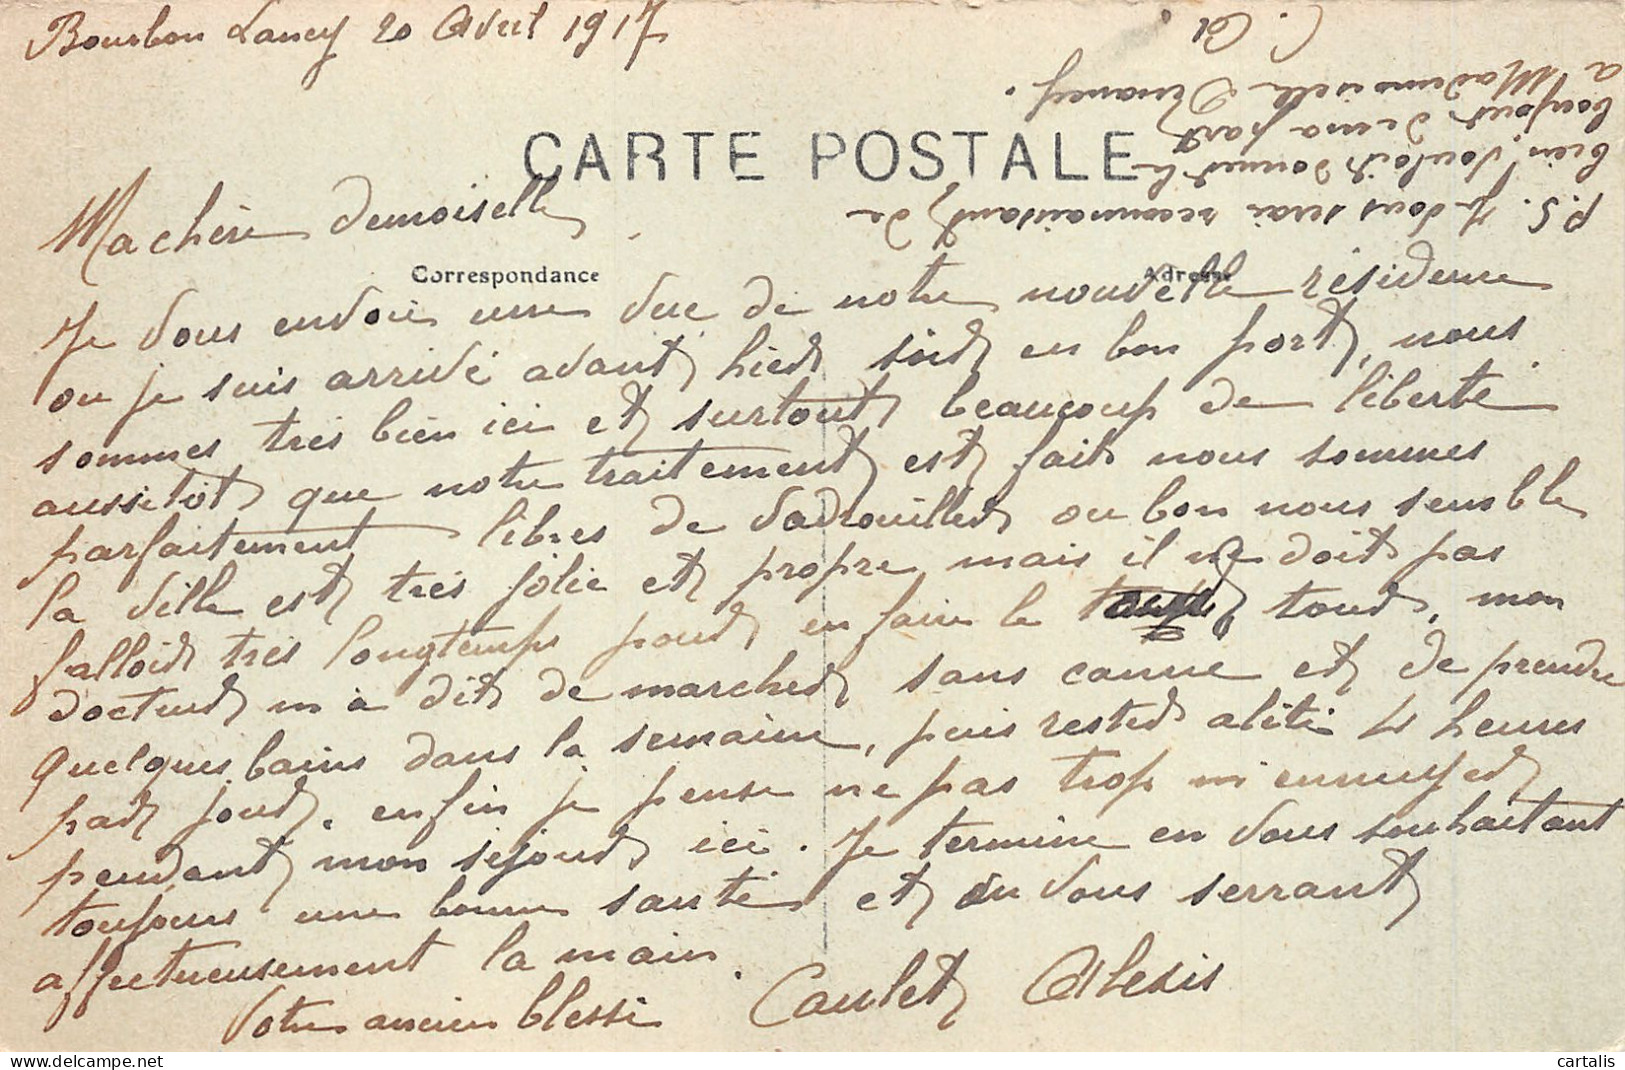 Bourbon Lancy 20 Avril 1917
CARTE POSTALE
Ma chère demoiselle
Correspondance
Adresse
Je vous envoie une vue de notre nouvelle résidence
ou je suis arrivé avant hier soir en bon port, nous
sommes très bien ici et surtout beaucoup de liberté
aussitôt que notre traitement est fait nous sommes
parfaitement libres de vadrouiller ou bon nous semble
la ville est très jolie et propre mais il ne doit pas
falloir très longtemps pour en faire le tour, mon
docteur m'a dit de marcher sans canne et de prendre
quelques bains dans la semaine, puis rester alité 4 heures
par jour. enfin je pense ne pas trop m'ennuyer
pendant mon séjour ici. Je termine en vous souhaitant
toujours une bonne santé et en vous serrant
affectueusement la main.
Votre ancien blessé Caulet Alexis
P.S. Je vous serai reconnaissant de
bien vouloir donner le
bonjour de ma part
a Mademoiselle
C.
cartalis